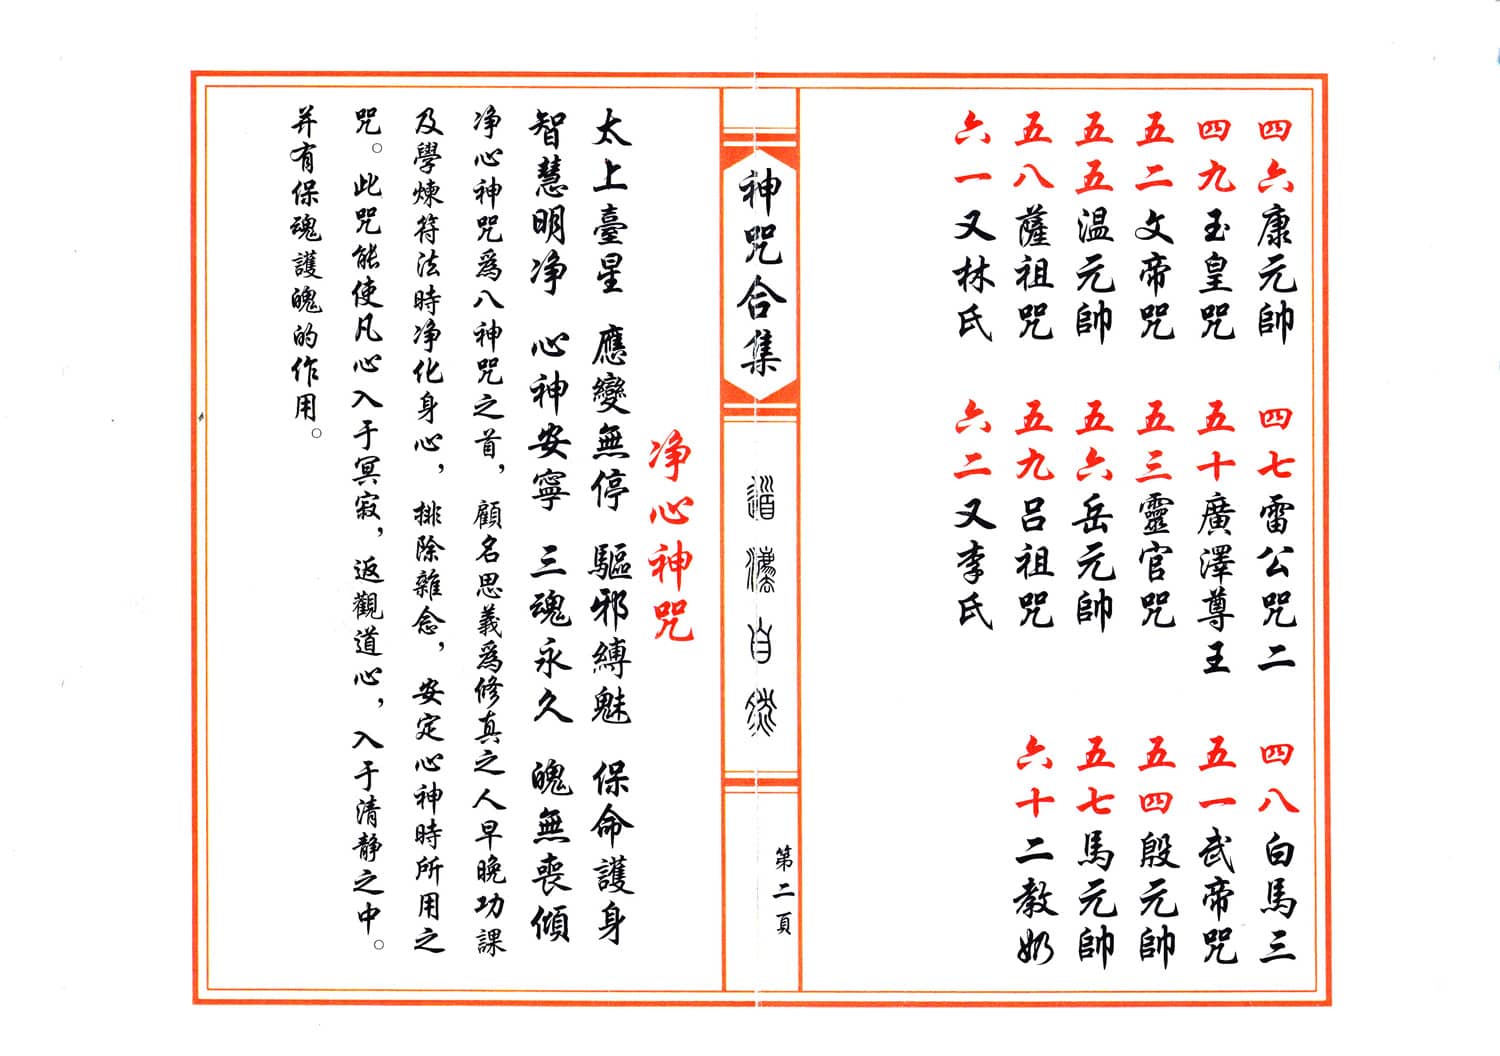 四六康元帥 四七雷公咒二 四八白馬三
四九玉皇咒 五十廣澤尊王 五一武帝咒
五二文帝咒 五三靈官咒 五四殷元帥
五五温元帥 五六岳元帥 五七馬元帥
五八薩祖咒 五九吕祖咒 六十二教奶
六一又林氏 六二又李氏
神咒合集
道法自然
第二頁
净心神咒
太上臺星 應變無停 驅邪縛魅 保命護身
智慧明净 心神安寧 三魂永久 魄無喪傾
净心神咒爲八神咒之首，顧名思義爲修真之人早晚功課
及學煉符法時净化身心，排除雜念，安定心神時所用之
咒。此咒能使凡心入于冥寂，返觀道心，入于清静之中。
并有保魂護魄的作用。